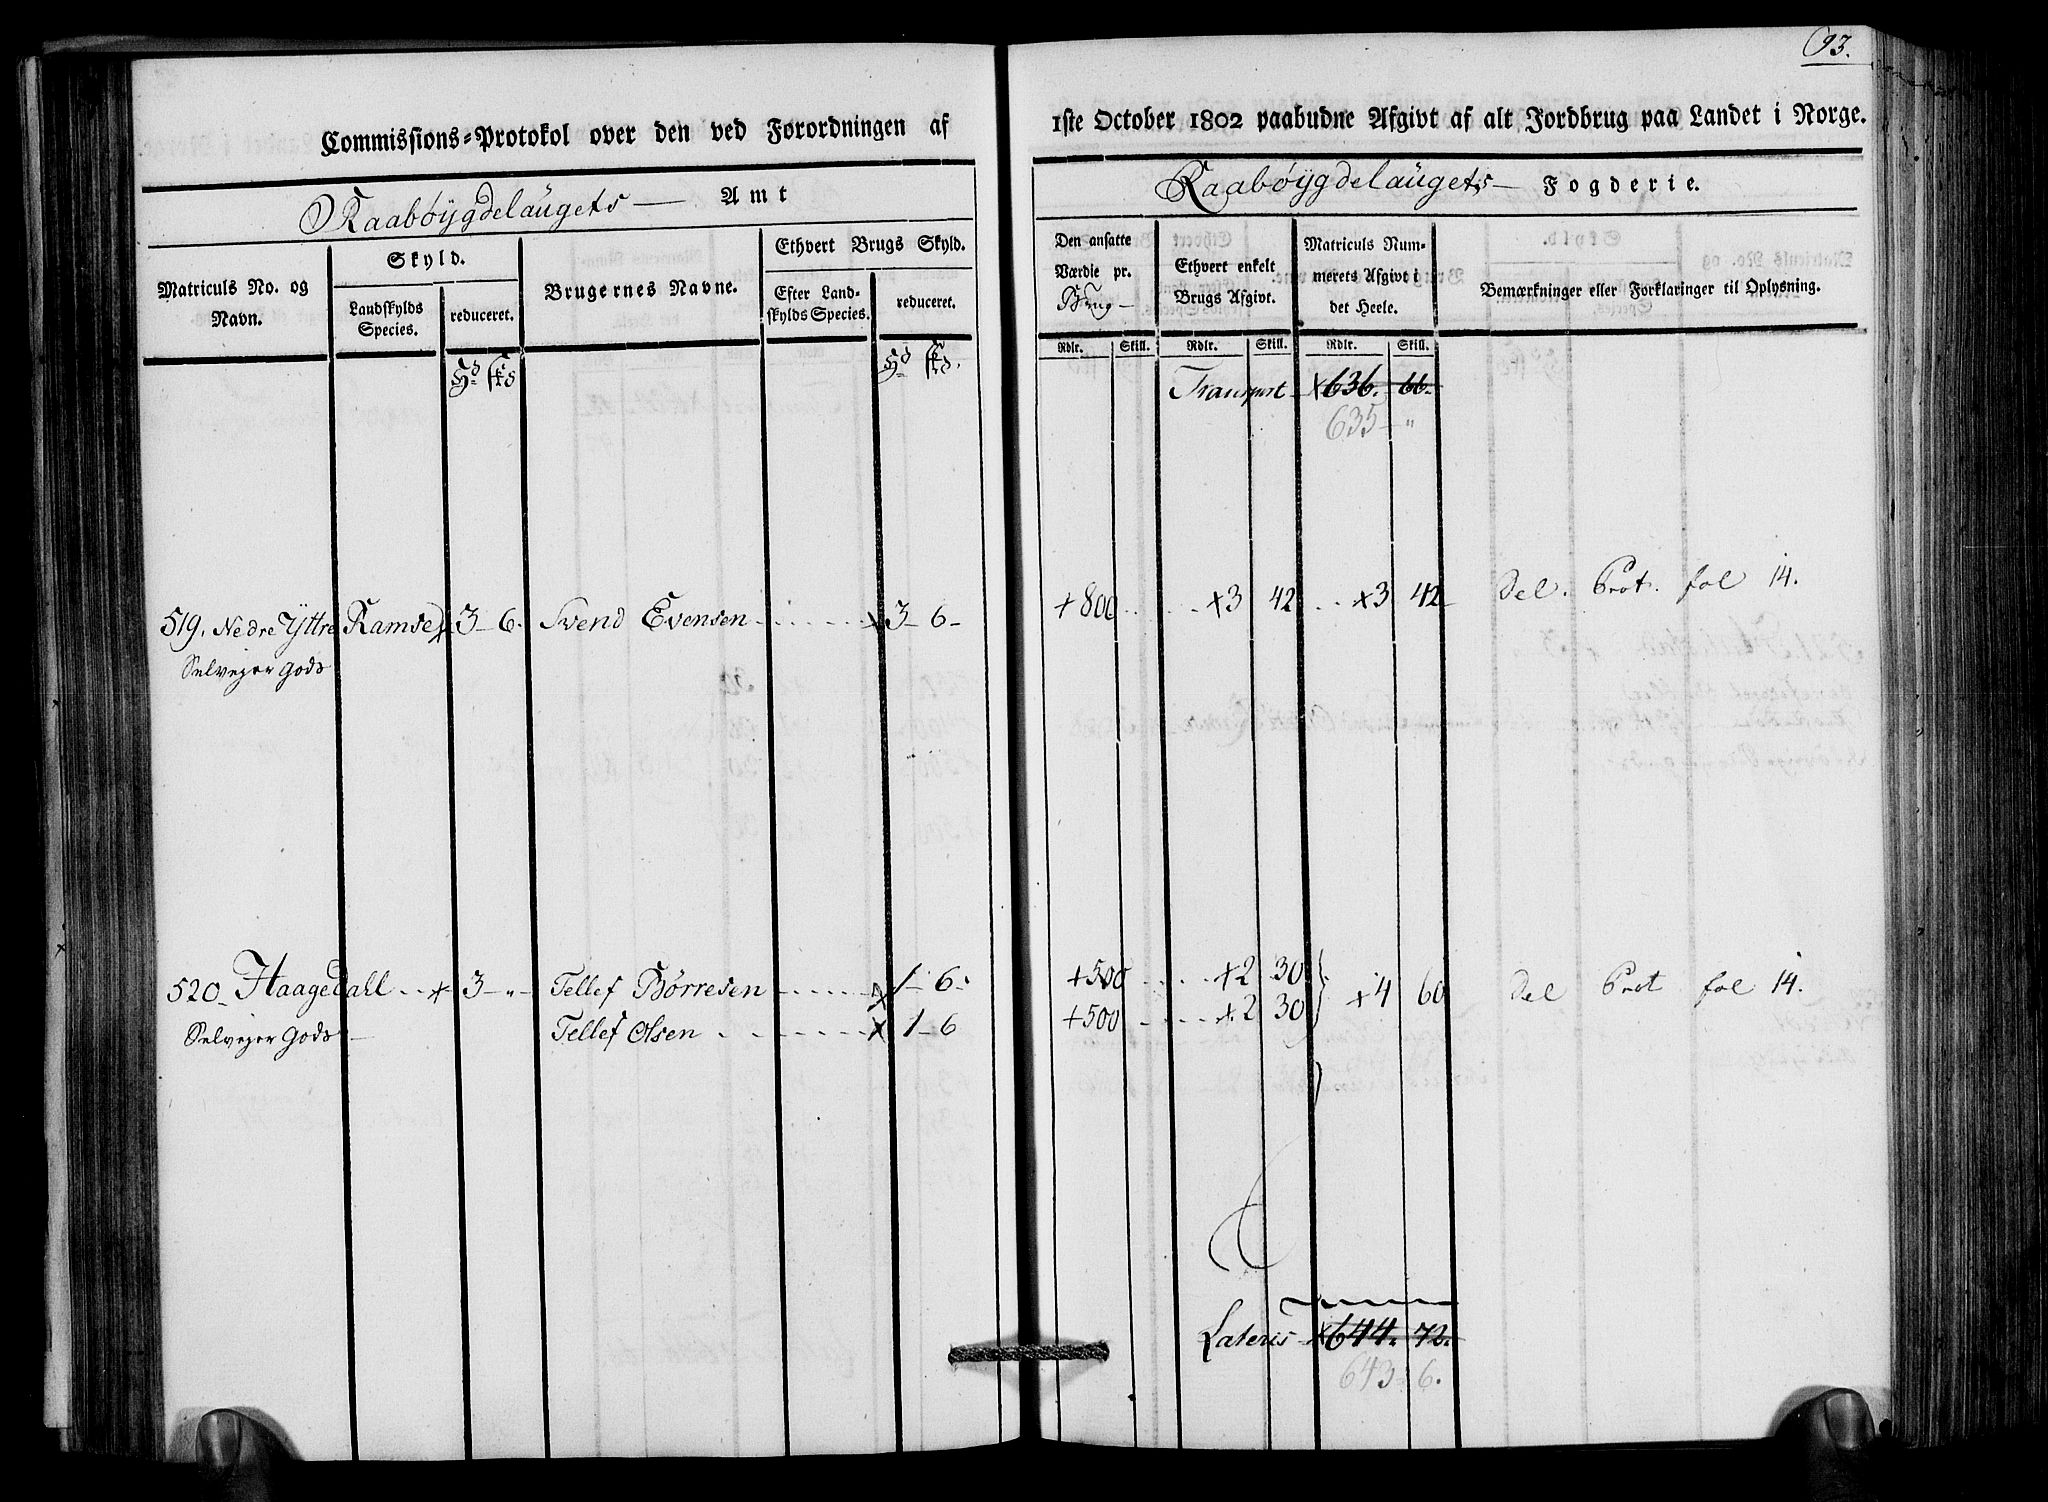 93.
Commissions-Protokol over den ved Forordningen af
1ste October 1802 paabudne Afgivt af alt Jordbrug paa Landet i Norge.
Raabøygdelaugets Amt
Raabøygdelaugets Fogderie.
Matriculs No. og Navn.
Skyld.
Landskylds Species.
reduceret.
Brugernes Navne.
Ethvert Brugs Skyld.
Efter Landskylds Species.
reduceret.
Den ansatte Værdie pr. Brug
Ethvert enkelt Brugs Afgivt.
Matriculs Nummerets Afgivt i det Heele.
Bemærkninger eller Forklaringer til Oplysning.
Rdlr. Skill. Rdlr. Skill. Rdlr. Skill.
Transport x 636. 66.
635 - "
519. Nedre Yttre Ramse x 3 - 6. Svend Evensen x 3 - 6 - + 800 x 3 42 x 3 42 Del. Prot. fol 14.
Selvejer Gods
520 - Haagedahl x 3 - " - Tellef Börresen x 1 - 6. + 500 x 2 30 x 4 60 Del Prot fol 14.
Selvejer Gods - Tellef Olsen x 1 - 6 + 500 x 2 30
Lateris x 644. 72.
643 - 6.